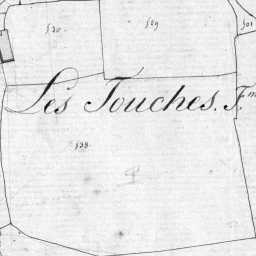 530
529
501
Les Touches. F.m
538